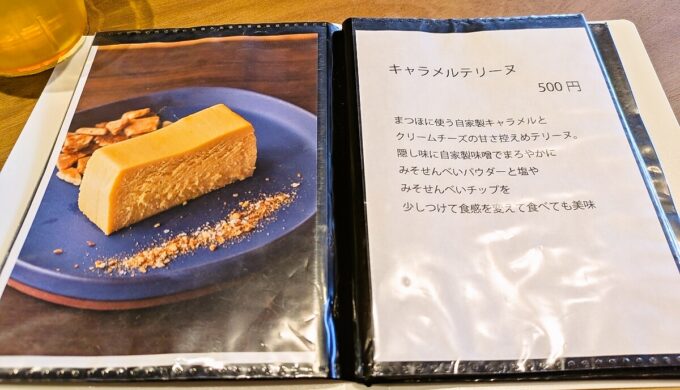 キャラメルテリーヌ
500円
まつほに使う自家製キャラメルと
クリームチーズの甘さ控えめテリーヌ。
隠し味に自家製味噌でまろやかに
みそせんべいパウダーと塩や
みそせんべいチップを
少しつけて食感を変えて食べても美味